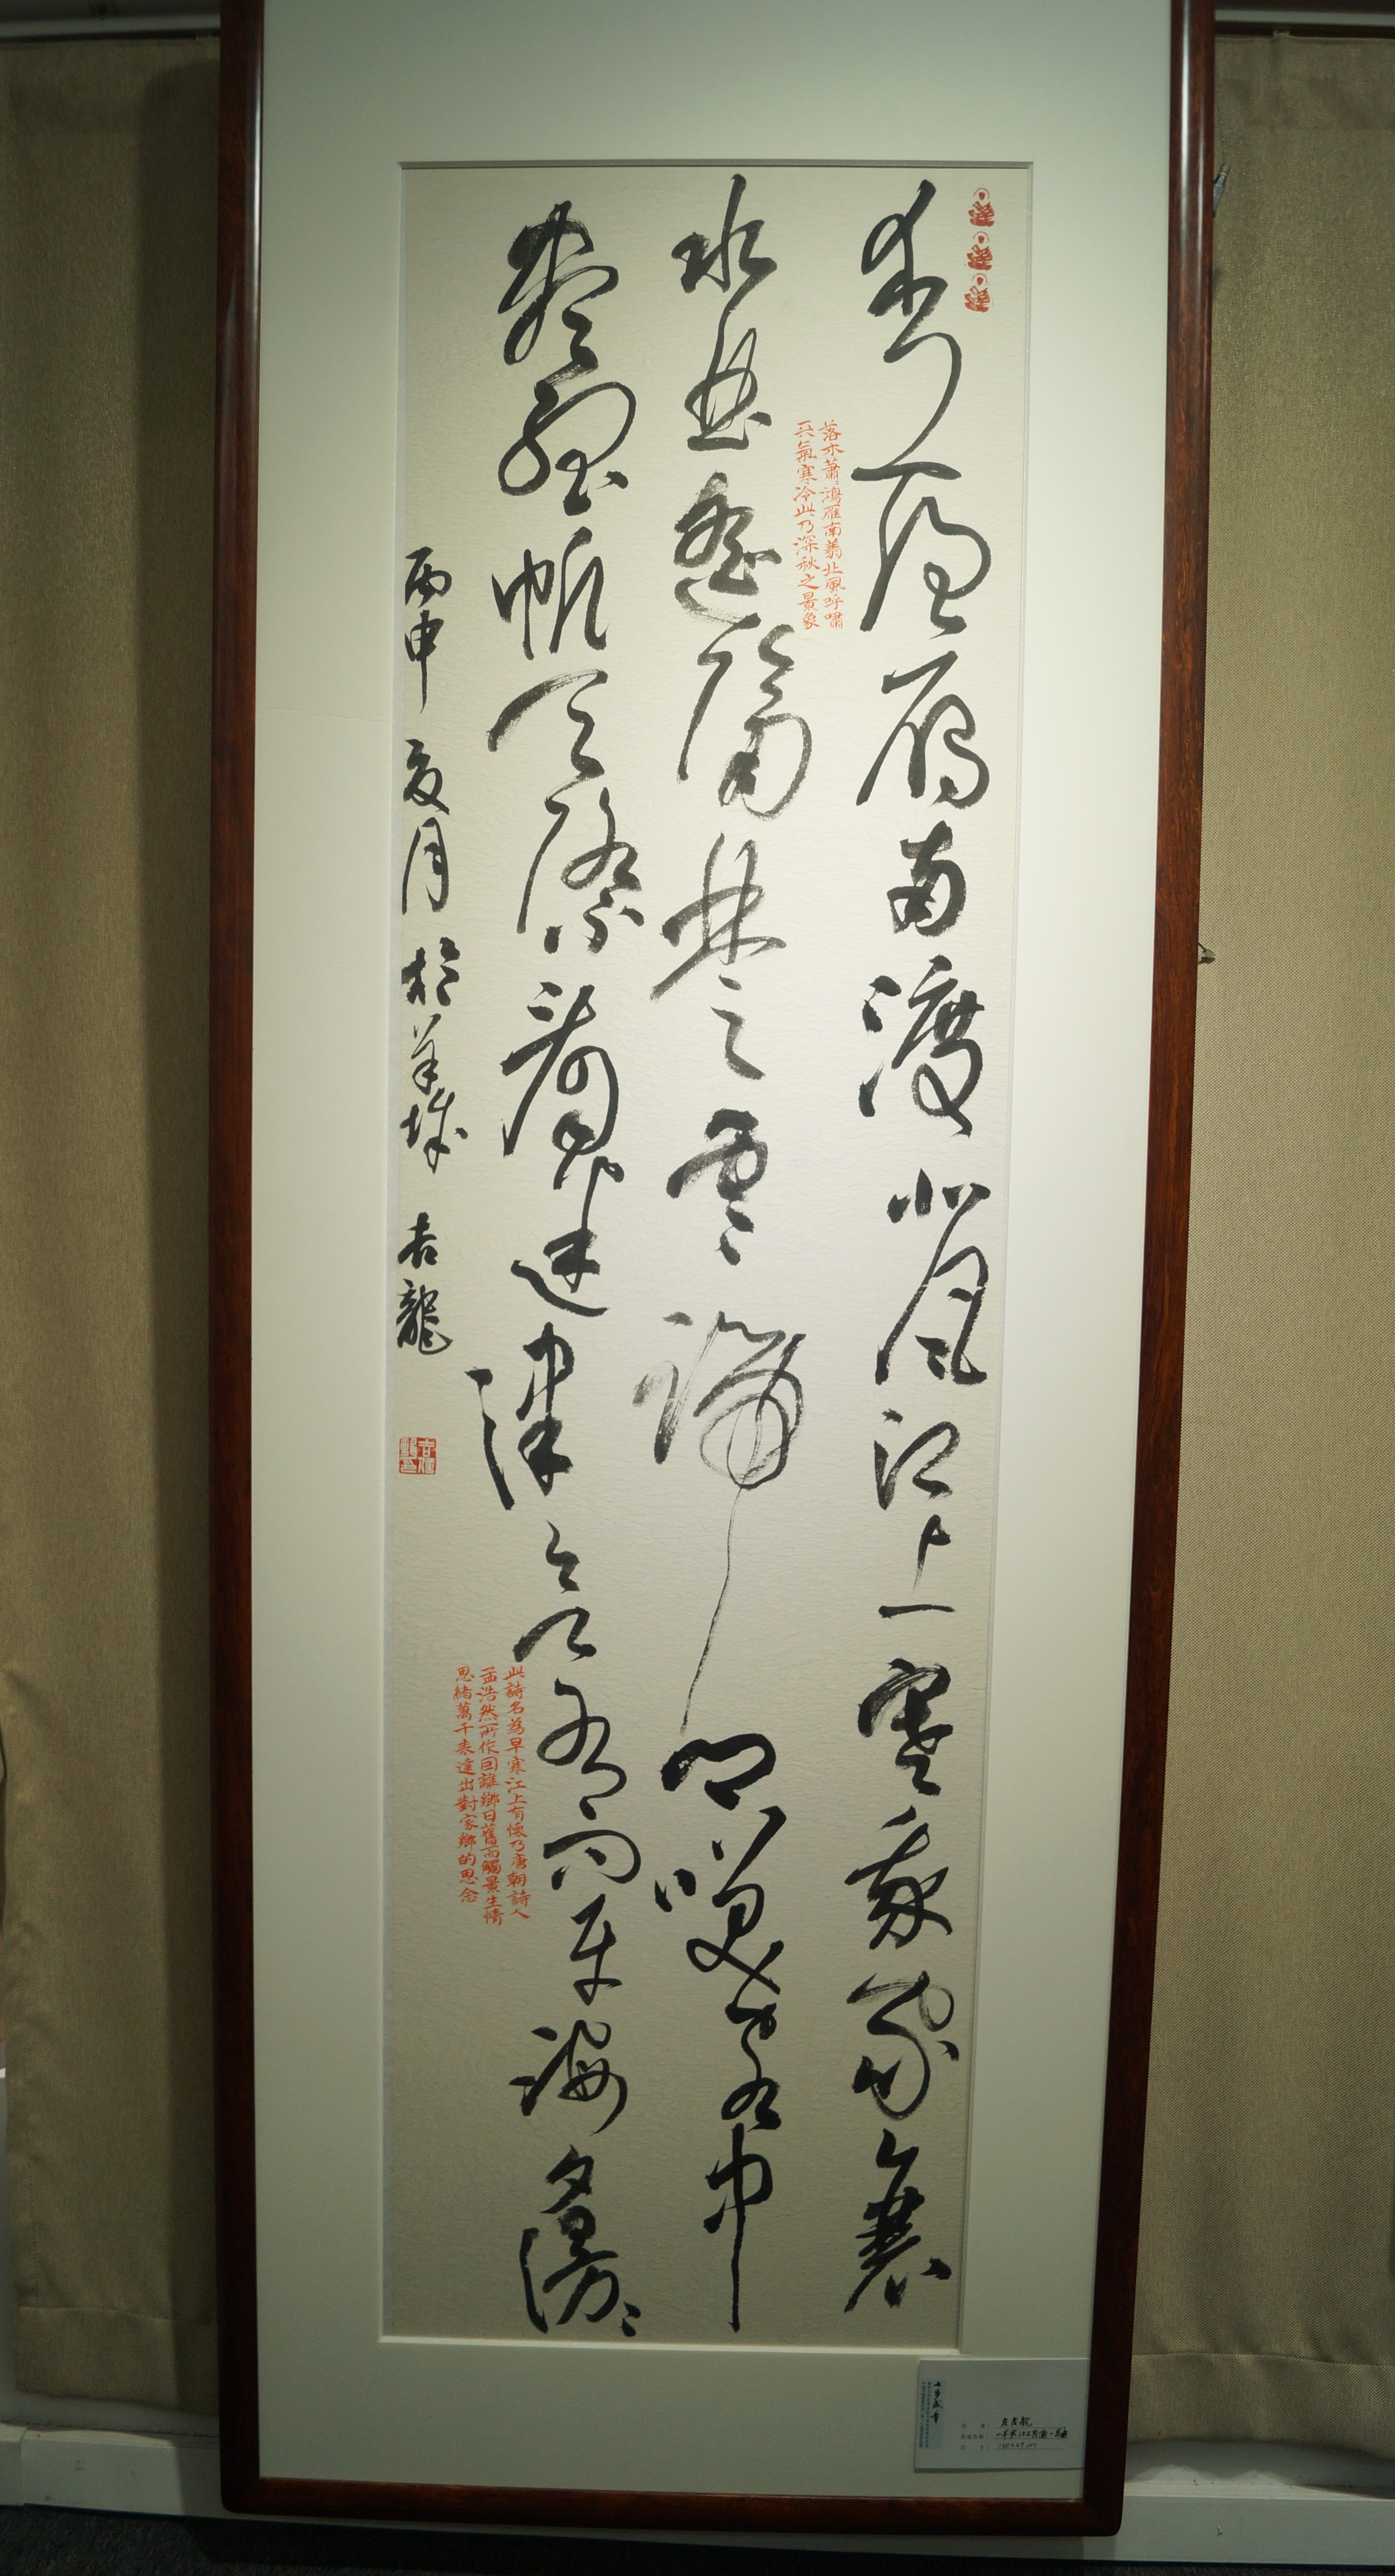 木落雁南渡北風江上寒我家襄
落木蕭鴻雁南翥北風呼嘯
天氣寒冷此乃深秋之景象
水曲遙隔楚雲端鄉淚客中
盡孤帆天際看迷津欲有問平海夕漫〻
此詩名為早寒江上有懷乃唐朝詩人
孟浩然所作回誰鄉日舊而觸景生情
思緒萬千表達出對家鄉的思念
丙申夏月於羊城 龍